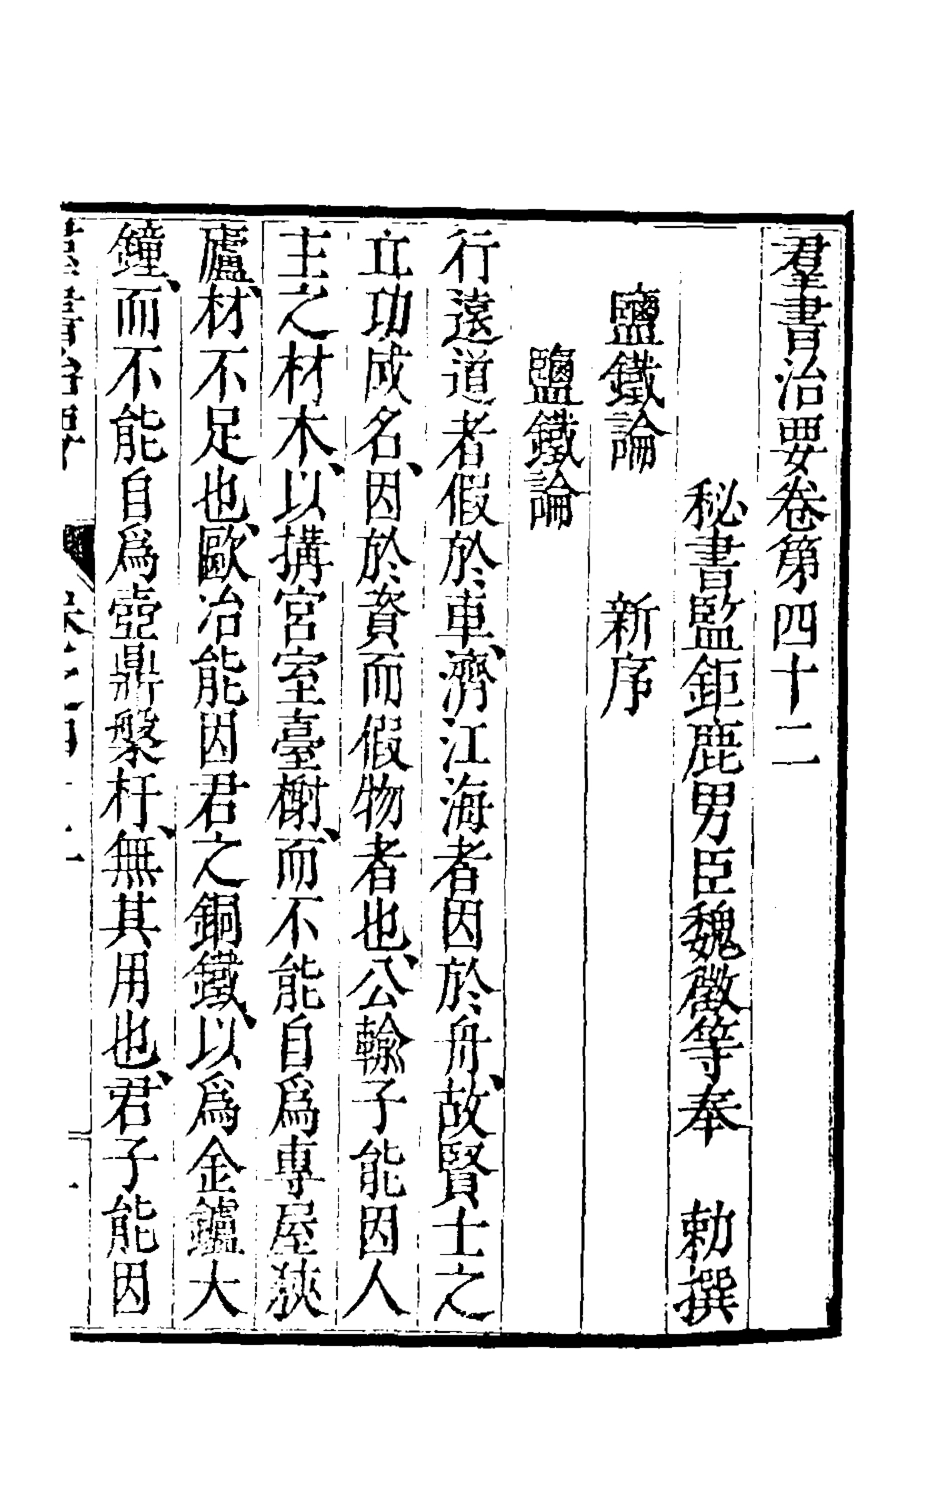 羣書治要卷第四十二
秘書監鉅鹿男臣魏徵等奉　勑撰
鹽鐵論　新序
鹽鐵論
行遠道者假於車、濟江海者因於舟、故賢士之
立功成名、因於資而假物者也、公輸子能因人
主之材木、以搆宮室臺榭、而不能自爲專屋狹
廬、材不足也、歐冶能因君之銅鐵、以爲金鑪大
鐘、而不能自爲壺鼎槃杅、無其用也、君子能因